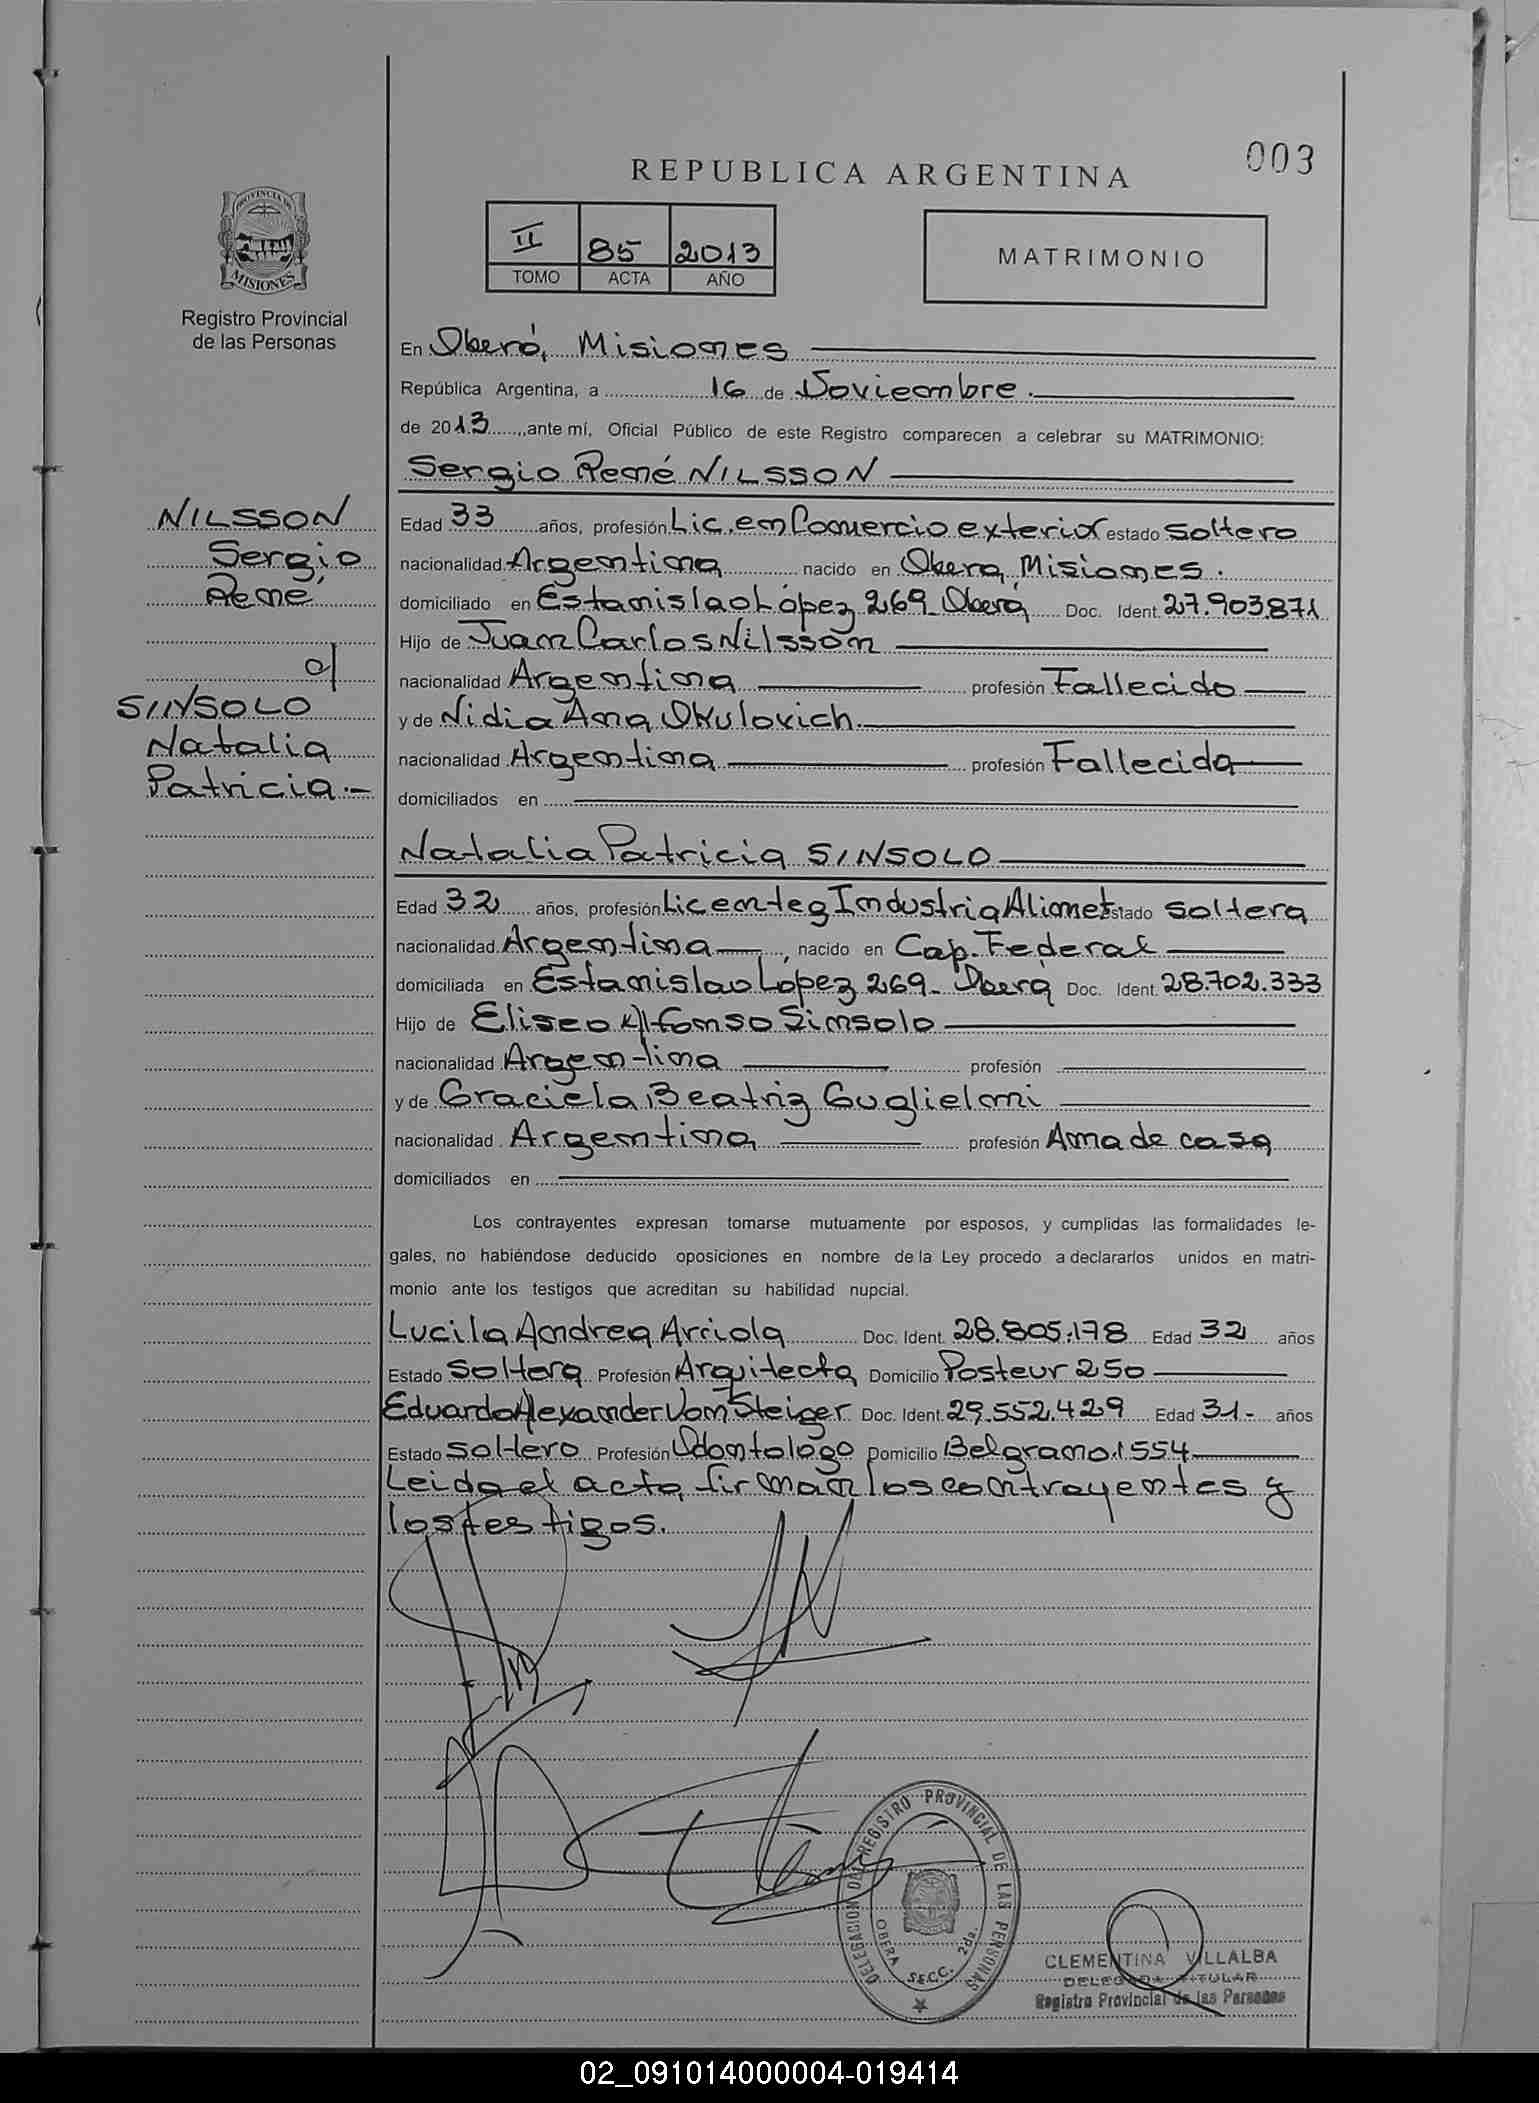 003
REPUBLICA ARGENTINA
PROVINCIA DE
MISIONES
Registro Provincial
de las Personas
II 85 2013
TOMO ACTA AÑO
MATRIMONIO
En Oberá, Misiones
República Argentina, a 16 de Noviembre.
de 2013, ante mí, Oficial Público de este Registro comparecen a celebrar su MATRIMONIO:
Sergio René NILSSON
NILSSON
Sergio
René
c/
SINSOLO
Natalia
Patricia.-
Edad 33 años, profesión Lic. en Comercio exterior estado soltero
nacionalidad Argentina nacido en Oberá, Misiones.
domiciliado en Estanislao López 269- Oberá Doc. Ident. 27.903.871
Hijo de Juan Carlos Nilsson
nacionalidad Argentina profesión Fallecido
y de Nidia Ana Okulovich.
nacionalidad Argentina profesión Fallecida
domiciliados en
Natalia Patricia SINSOLO
Edad 32 años, profesión Licenteg Industria Aliment estado soltera
nacionalidad Argentina, nacido en Cap. Federal
domiciliada en Estanislao López 269- Oberá Doc. Ident. 28.702.333
Hijo de Eliseo Alfonso Sinsolo
nacionalidad Argentina profesión
y de Graciela Beatriz Guglielmi
nacionalidad Argentina profesión Ama de casa
domiciliados en
Los contrayentes expresan tomarse mutuamente por esposos, y cumplidas las formalidades le-
gales, no habiéndose deducido oposiciones en nombre de la Ley procedo a declararlos unidos en matri-
monio ante los testigos que acreditan su habilidad nupcial.
Lucila Andrea Arriola Doc. Ident. 28.805.178 Edad 32 años
Estado Soltera Profesión Arquitecta Domicilio Posteur 250
Eduardo Alexander Von Steiger Doc. Ident. 29.552.429 Edad 31.- años
Estado soltero Profesión Odontologo Domicilio Belgrano 1554
Leida el acta, firman los contrayentes y
los testigos.
DELEGACION DEL REGISTRO PROVINCIAL DE LAS PERSONAS
OBERA SECC. 2da.
CLEMENTINA VILLALBA
DELEGADA TITULAR
Registro Provincial de las Personas
02_091014000004-019414